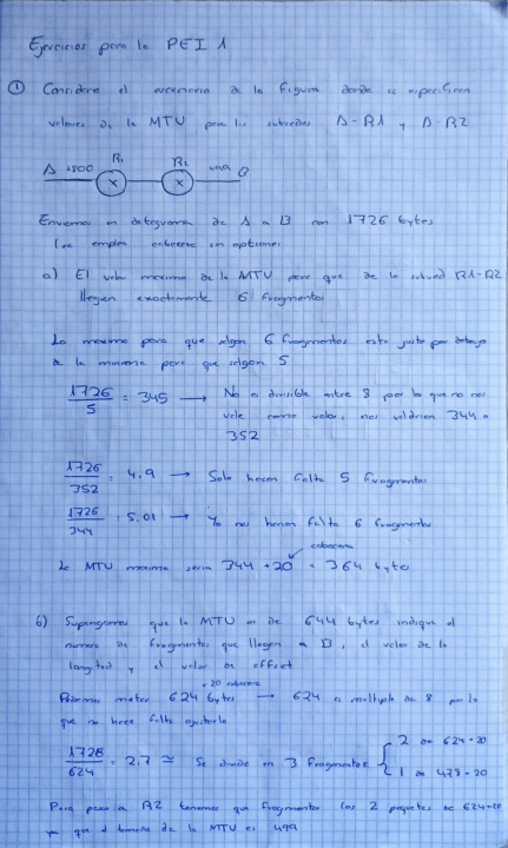 Ejercicios para la PEI 1
① Considere el escenario de la figura donde se especifican
valores de la MTU para las subredes A-R1 y B-R2
A 1500 R1 R2 499 B
Enviamos un datagrama de A a B con 1726 bytes
(se emplea cabecera sin opciones
a) El valor maximo de la MTU para que de la subred R1-R2
lleguen exactamente 6 fragmentos
Lo maximo para que salgan 6 fragmentos esta justo por debajo
de la minimo para que salgan 5
1726/5 = 345 → No es divisible entre 8 por lo que no nos
vale como valor, nos valdrian 344 o
352
1726/352 = 4.9 → Solo hacen falta 5 fragmentos
1726/344 = 5.01 → Ya nos harian falta 6 fragmentos
cabecera
La MTU maxima seria 344 + 20 = 364 bytes
b) Supongamos que la MTU es de 644 bytes indique el
numero de fragmentos que llegan a B, el valor de la
longitud y el valor de offset
+ 20 cabecera
Podemos meter 624 bytes → 624 es multiplo de 8 por lo
que no hace falta ajustarlo
1728/624 = 2.7 ≅ Se divide en 3 fragmentos { 2 de 624+20
1 de 478+20
Para pasar a R2 tenemos que fragmentar los 2 paquetes de 624+20
ya que el tamaño de la MTU es 499